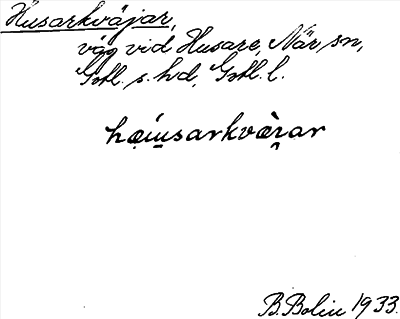 Husarkväjar,
väg vid Husare, När sn,
Gotl. s. hd, Gotl. l.
hæ̣íu̱sarkvæ̀ɪ̯ar
B. Bolin 1933.